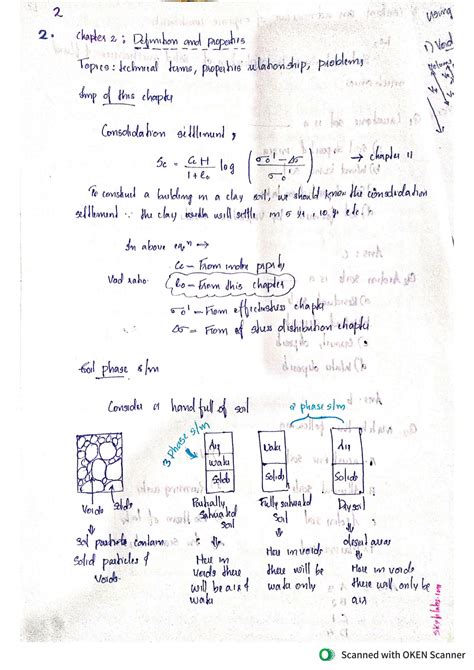 2
2. Chapter 2 : Definition and properties
Topics : technical terms, properties relationship, problems
Imp of this chapter
Consolidation settlement,
Sc = Cc H / 1 + e0 log ( σ0' - Δσ / σ0' ) → chapter 11
To construct a building in a clay soil, we should know the consolidation
settlement ∵ the clay will settle in 5 yr, 10 yr etc.
In above eqn →
Cc - From index
Void ratio e0 - From this chapter
σ0' - From chapter
Δσ - From of stress distribution chapter
Soil phase s/m
Consider a handfull of soil
3 phase s/m
2 phase s/m
Air
Water
Solids
Water
Solids
Air
Solids
Voids Solids
Partially Saturated Soil
Fully saturated Soil
Dry soil
Soil particle contain
Solid particles &
Voids
Here in voids there will be air & water
Here in voids there will be water only
Here in voids there will only be air
using
1) Void
Scanned with OKEN Scanner